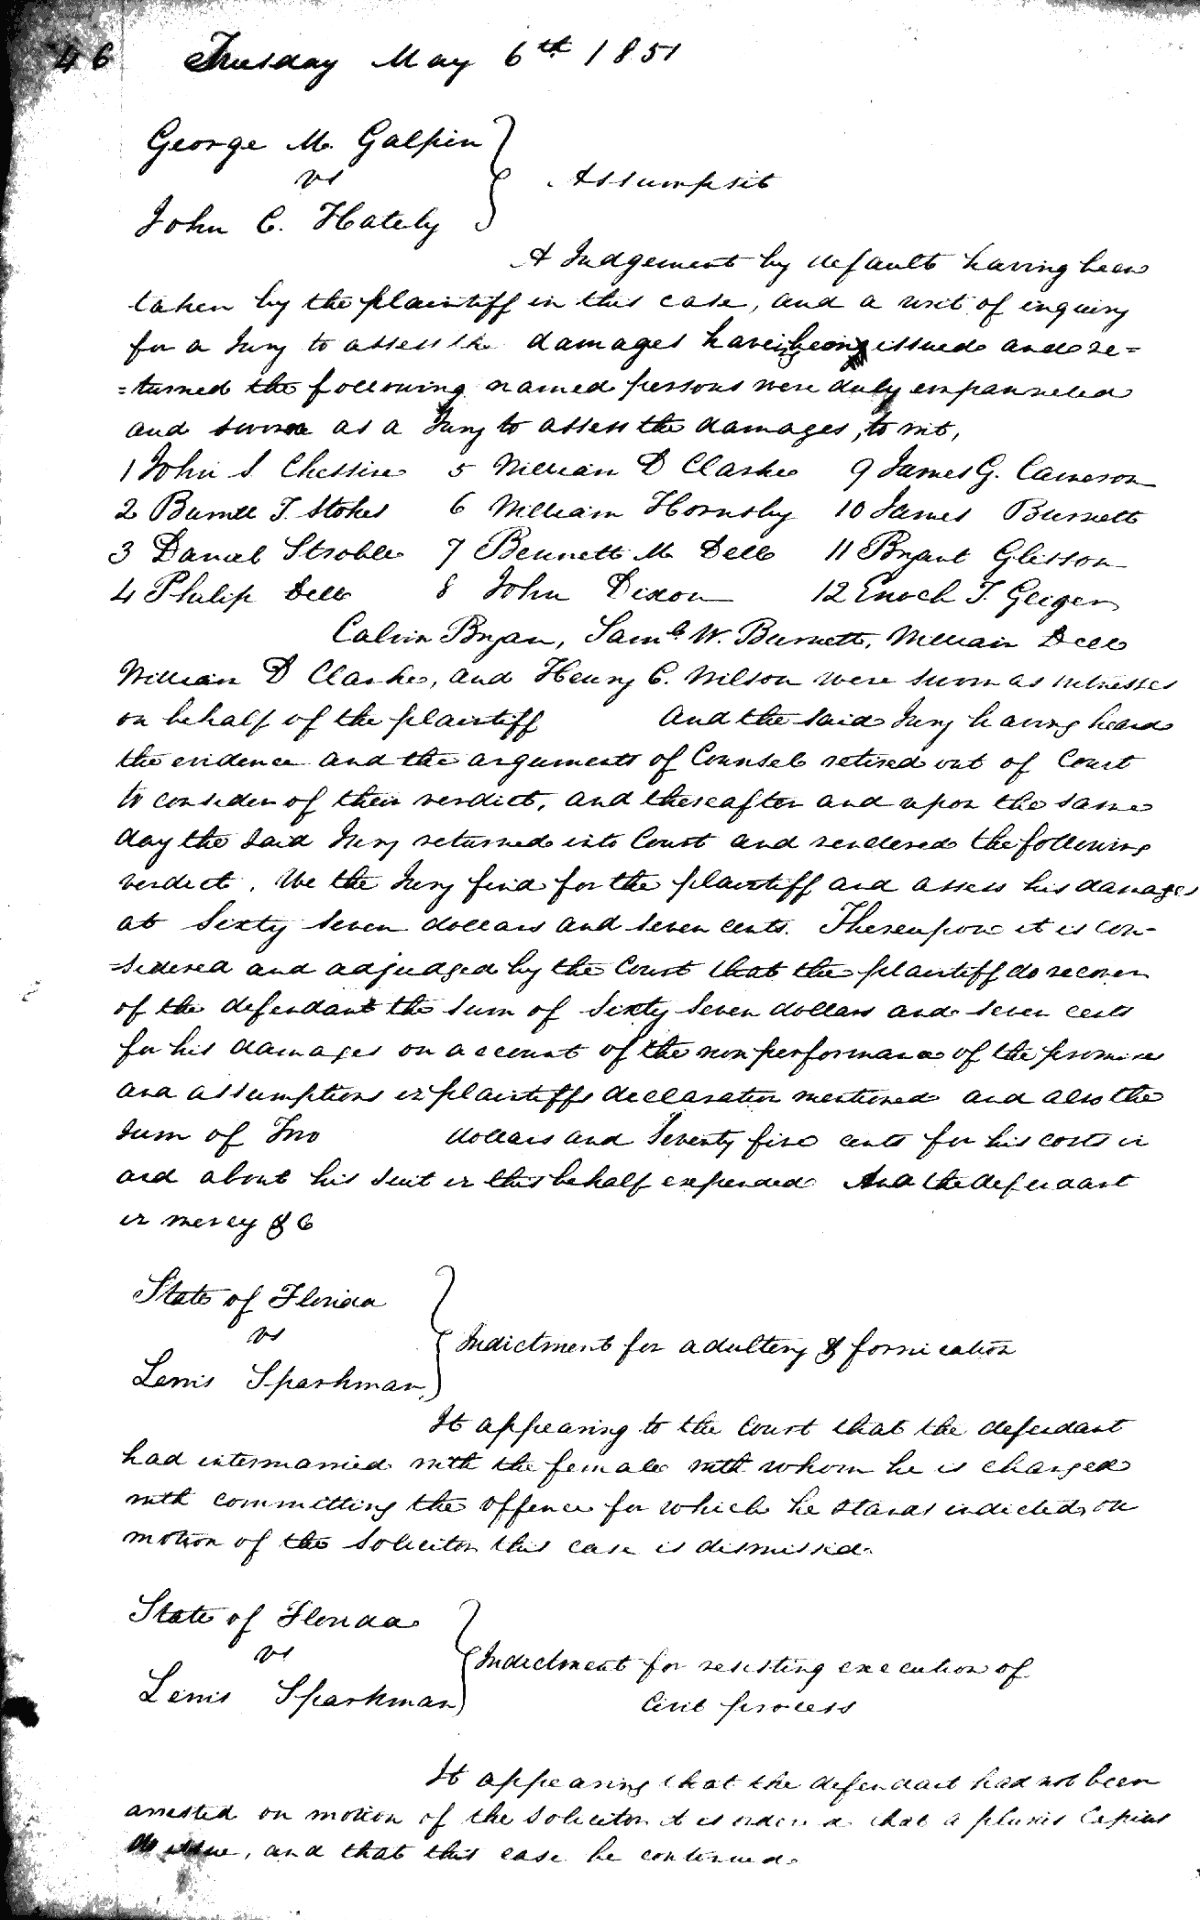 46 Tuesday May 6th 1851
George M. Galphin
vs
Assumpsit
John C. Hately
A Judgement by default having been
taken by the plaintiff in this case, and a writ of inquiry
for a Jury to assess the damages having been issued and re=
=turned the following named persons were duly empanneled
and sworn as a Jury to assess the damages, to wit,
1 John S Chessire 5 William D Clarke 9 James G. Cameron
2 Burrell T. Stokes 6 William Hornsby 10 James Burnett
3 Daniel Stroble 7 Bennett M Dell 11 Bryant Glisson
4 Philip Dell 8 John Dixon 12 Enoch T. Geiger
Calvin Bryan, Saml W. Burnett, William Dell
William D Clarke, and Henry C. Wilson were sworn as witnesses
on behalf of the plaintiff And the said Jury having heard
the evidence and the arguments of Counsel retired out of Court
to consider of their verdict, and thereafter and upon the same
day the said Jury returned into Court and rendered the following
verdict. We the Jury find for the plaintiff and assess his damages
at Sixty Seven dollars and Seven cents. Thereupon it is con-
=sidered and adjudged by the Court that the plaintiff do recover
of the defendant the Sum of Sixty Seven dollars and seven cents
for his damages on account of the nonperformance of the promises
and assumptions in plaintiffs declaration mentioned and also the
Sum of Two dollars and Seventy five cents for his costs in
and about his Suit in this behalf expended And the defendant
in mercy &c
State of Florida
vs
Indictment for adultery & fornication
Lewis Sparkman
It appearing to the Court that the defendant
had intermarried with the female with whom he is charged
with committing the offence for which he stands indicted, on
motion of the Solicitor this case is dismissed.
State of Florida
vs
Indictment for resisting execution of
Lewis Sparkman
Civil process
It appearing that the defendant had not been
arrested on motion of the Solicitor it is ordered that a pluries Capias
do issue, and that this case be continued.